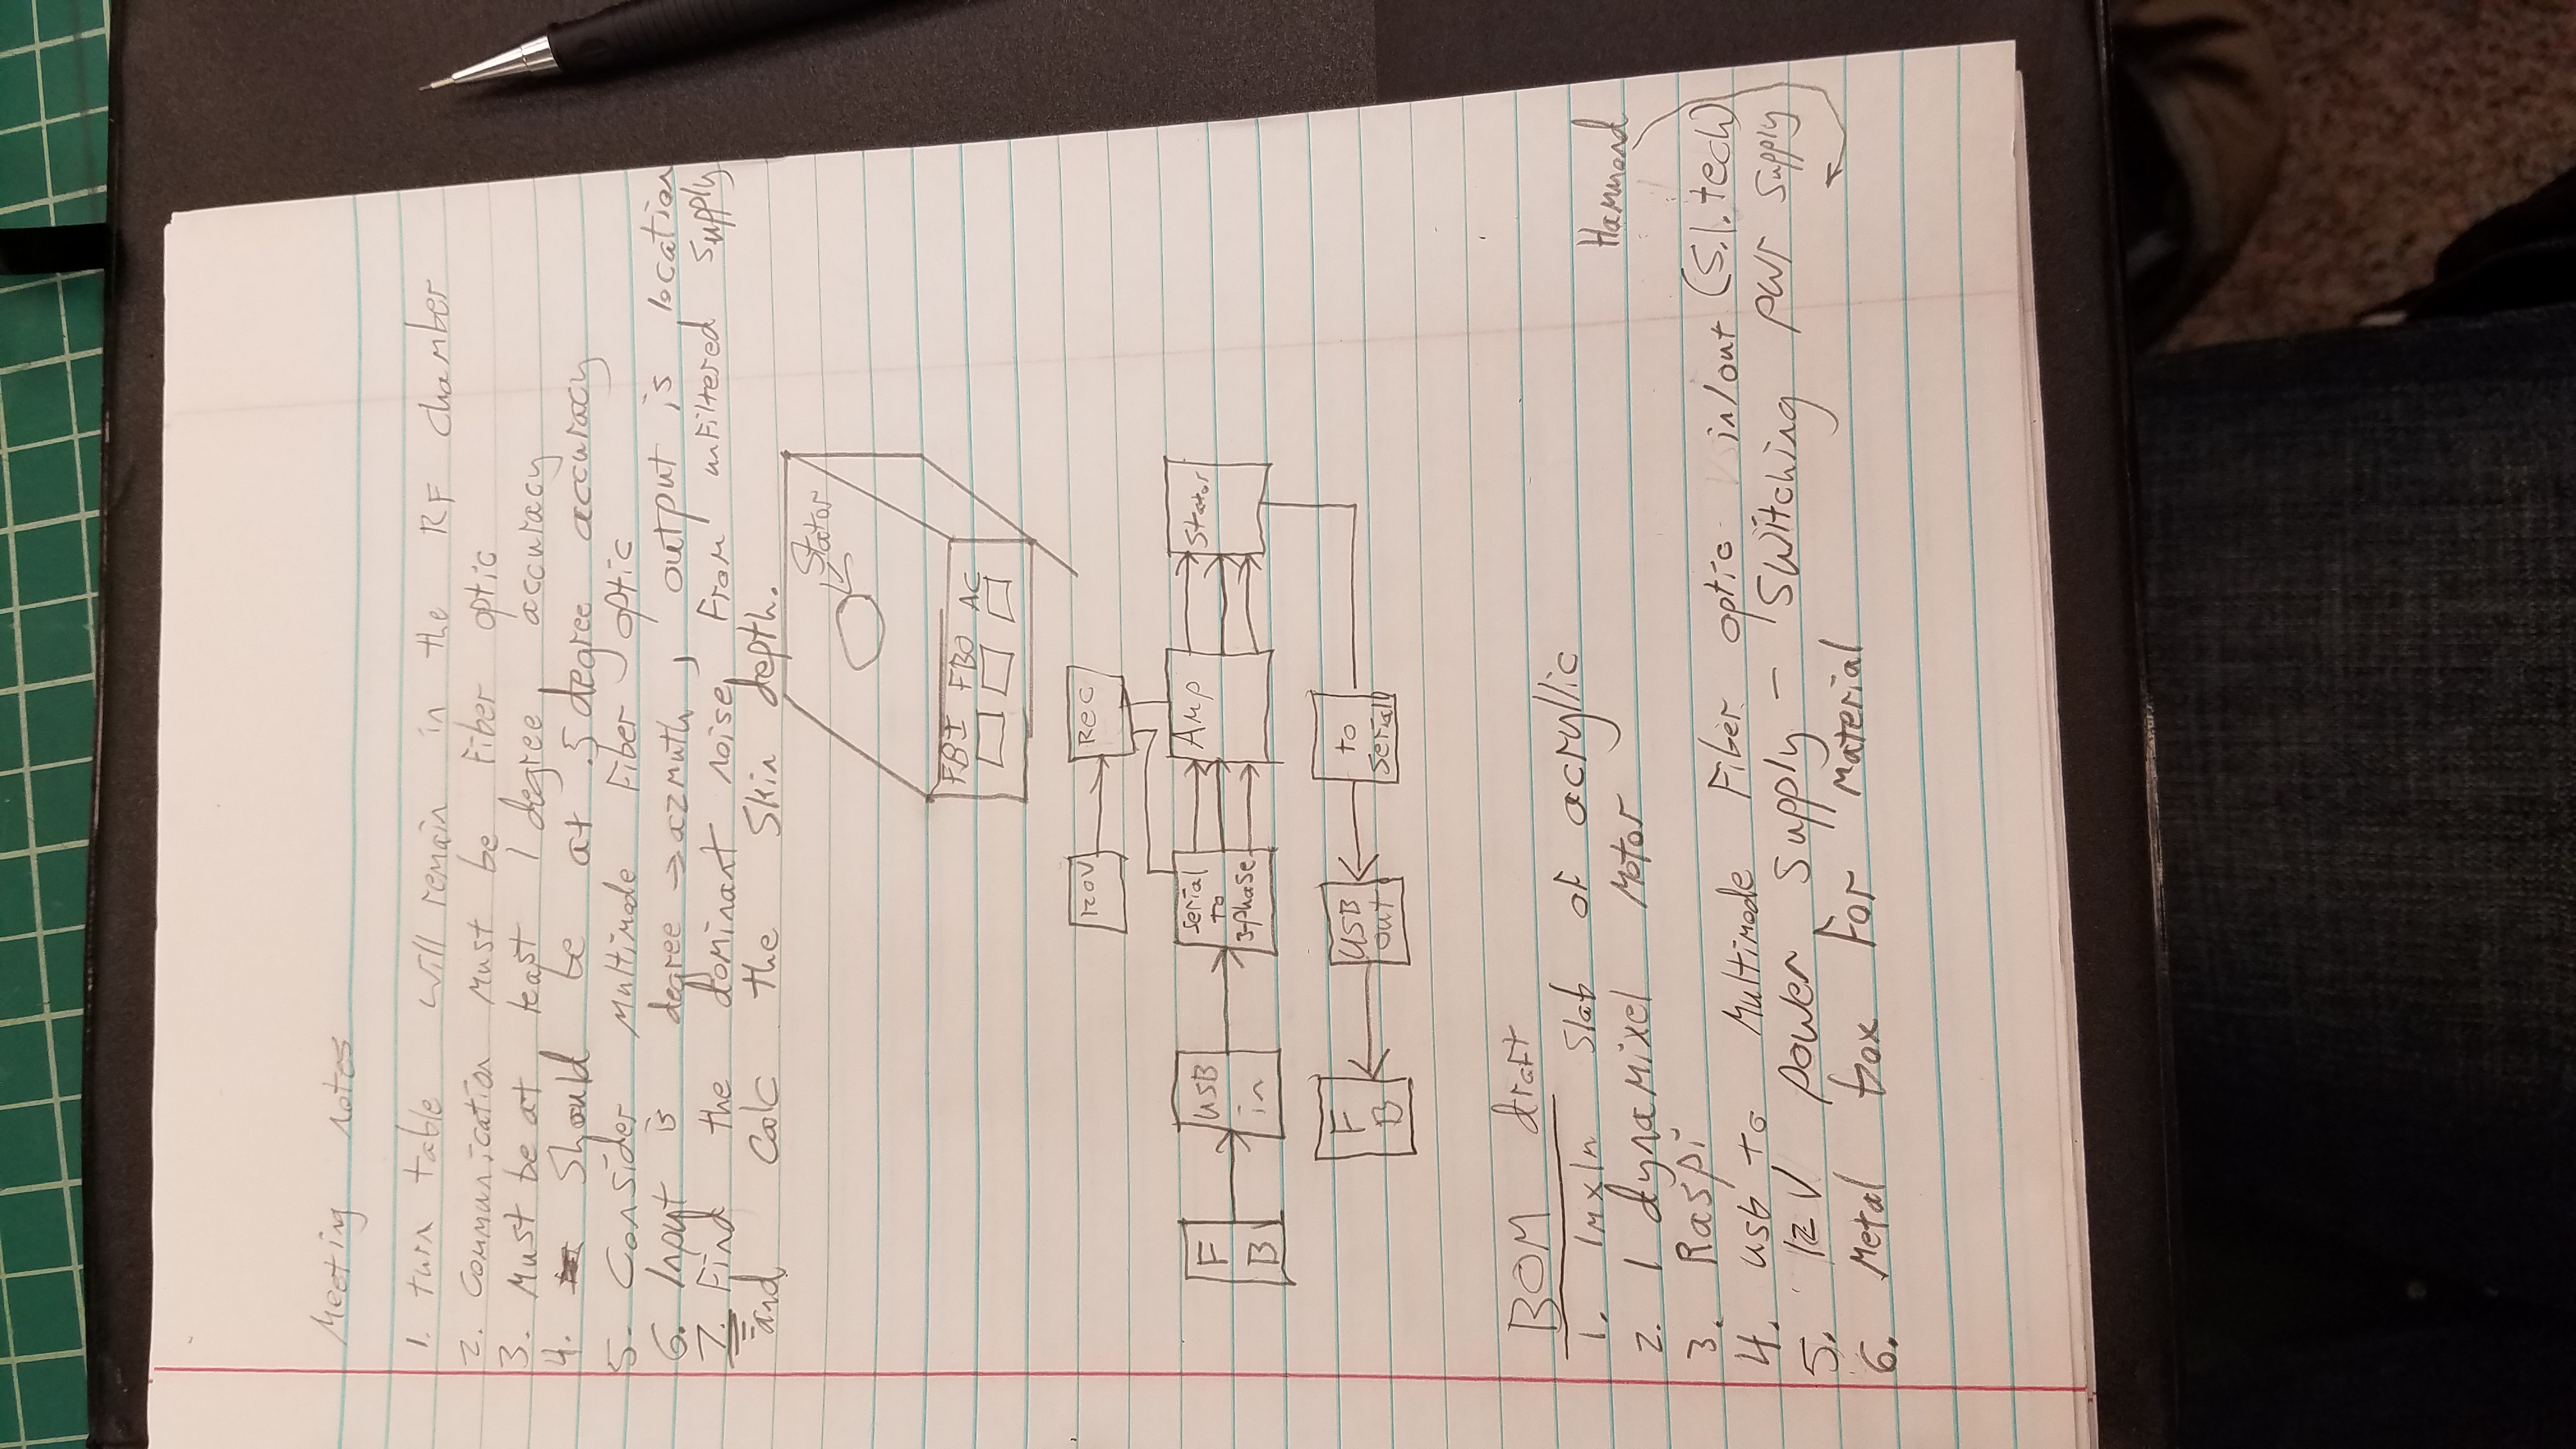 Meeting notes
1. turn table will remain in the RF chamber
2. Communication must be fiber optic
3. Must be at least 1 degree accuracy
4. Should be at .5 degree accuracy
5. Consider multimode fiber optic
6. Input is degree → azmuth, output is location
7. Find the dominant noise from unfiltered supply
and calc the skin depth.
Stator
FBI FBO AC
120V Rec
F B
USB in
serial to 3-phase
Amp
Stator
F B
USB out
to serial
BOM draft
1. 1mx1m slab of acryllic
Hammond
2. 1 dynamixel motor
3. Raspi
4. usb to multimode fiber optic in/out (S.I. tech)
5. 12V power supply - switching pwr supply
6. Metal box for material